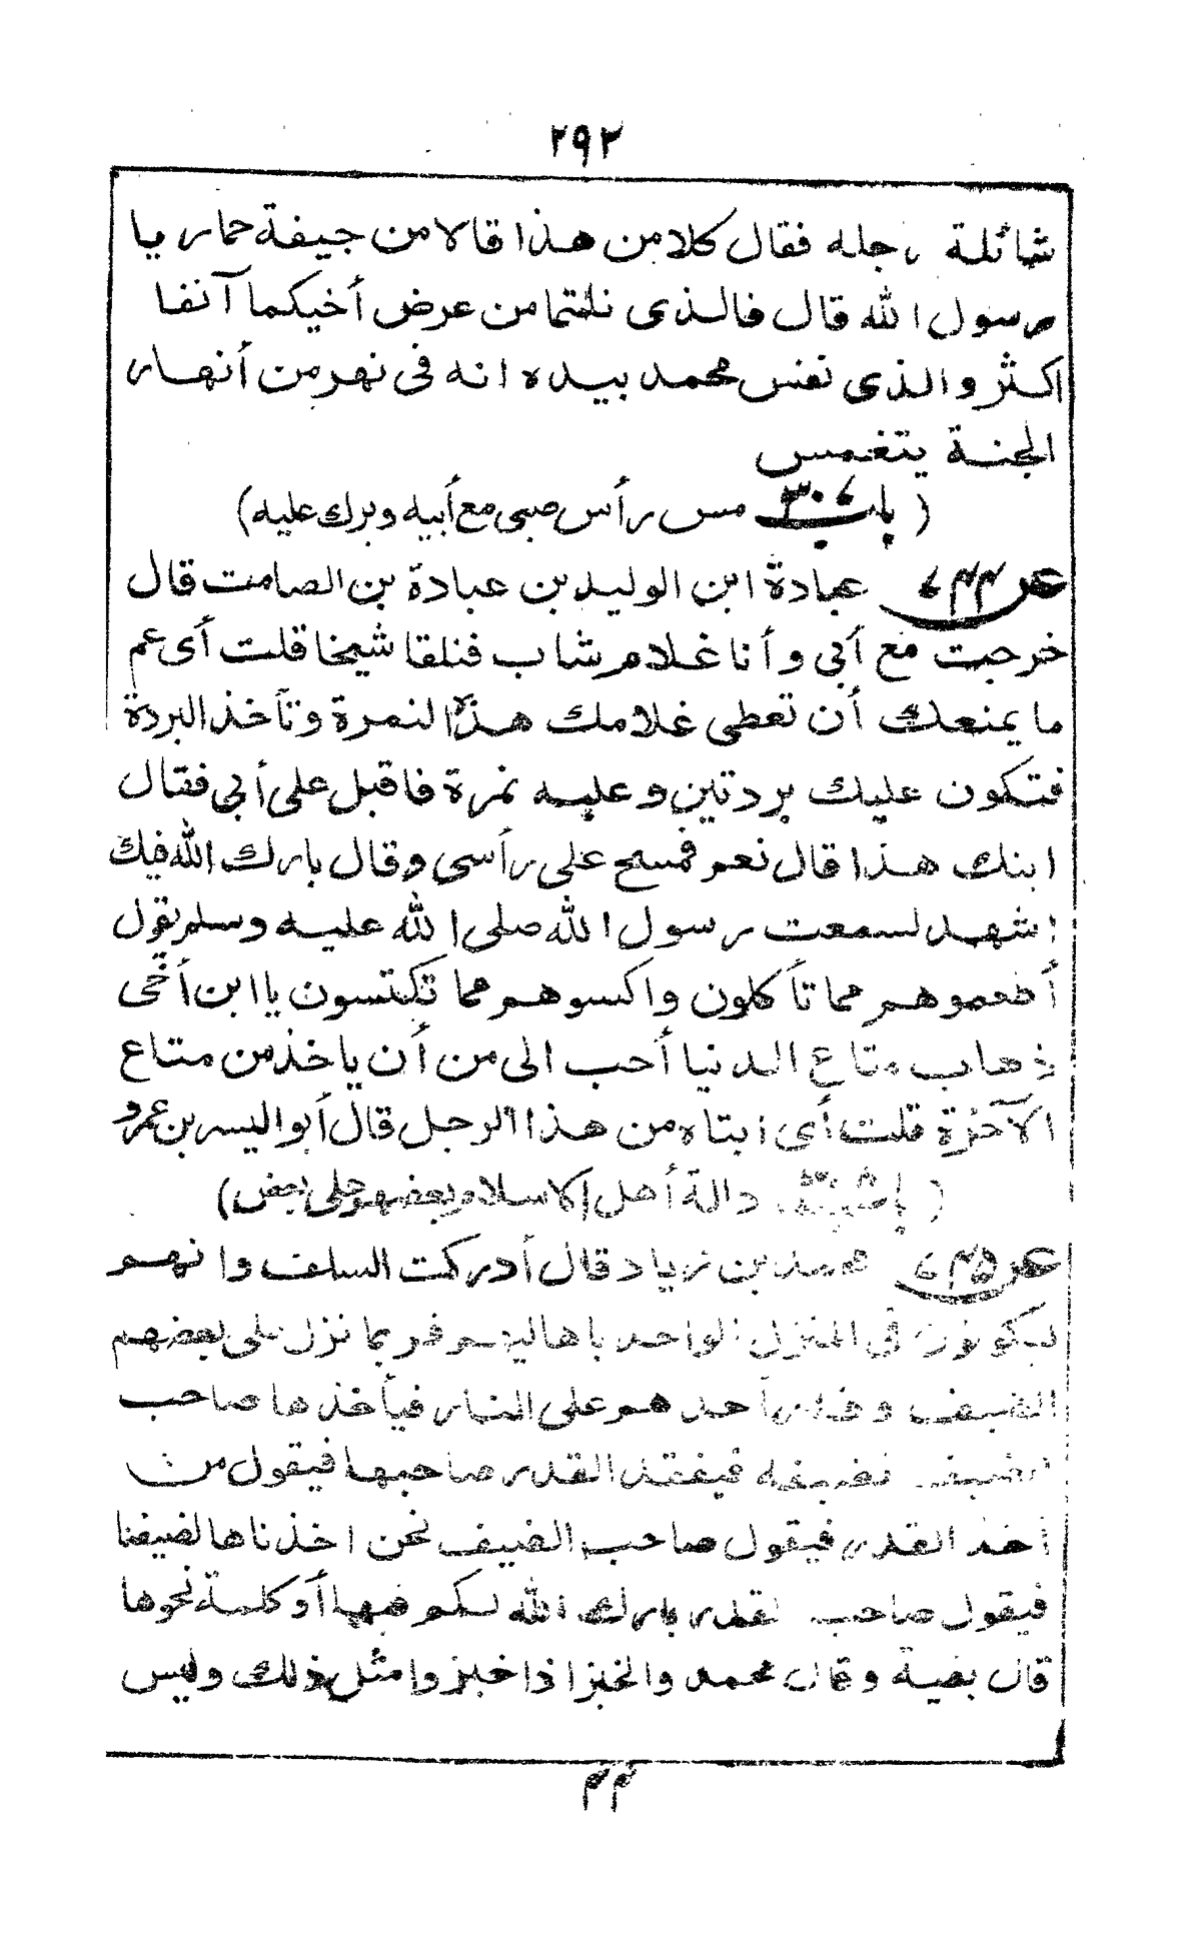 ٢٩٢
شائلة رجله فقال كلا من هذا قالا من جيفة حمار يا
رسول الله قال فالذى نلتما من عرض أخيكما آنفا
اكثر والذى نفس محمد بيده انه فى نهر من أنهار
الجنة يتغمس
(باب ٣٠٧ مس رأس صبى مع أبيه وبرك عليه)
عبادة ابن الوليد بن عبادة بن الصامت قال
خرجت مع أبي وأنا غلام شاب فنلقا شيخا قلت أى عم
ما يمنعك أن تعطى غلامك هذه النمرة وتأخذ البردة
فتكون عليك بردتين وعليه نمرة فاقبل على أبي فقال
ابنك هذا قال نعم فمسح على رأسى وقال بارك الله فيك
اشهد لسمعت رسول الله صلى الله عليه وسلم يقول
أطعموهم مما تأكلون واكسوهم مما تكتسون يا ابن أخى
ذهاب متاع الدنيا أحب الى من أن ياخذ من متاع
الآخرة قلت أى ابتاه من هذا الرجل قال أبو اليسر بن عمرو
(باب دالة أهل الاسلام بعضهم على بعض)
محمد بن زياد قال أدركت السلف وانهم
ليكونون في المنزل الواحد باهاليهم فربما نزل على بعضهم
الضيف وقدر أحدهم على النار فيأخذها صاحب
الضيف لضيفه فيفقد القدر صاحبها فيقول من
أخذ القدر فيقول صاحب الضيف نحن اخذناها لضيفنا
فيقول صاحب القدر بارك الله لكم فيها أو كلمة نحوها
قال بقية وقال محمد والخبز اذا خبزوا مثل ذلك وليس